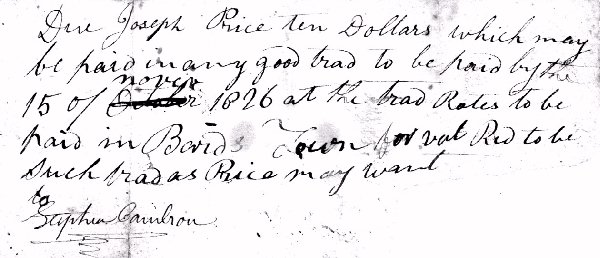 Due Joseph Price ten Dollars which may
be paid in any good trad to be paid by the
nover
15 of October 1826 at the trad Rates to be
paid in Bairds Town for val Red to be
such trad as Price may want
to
Stephen Camdron